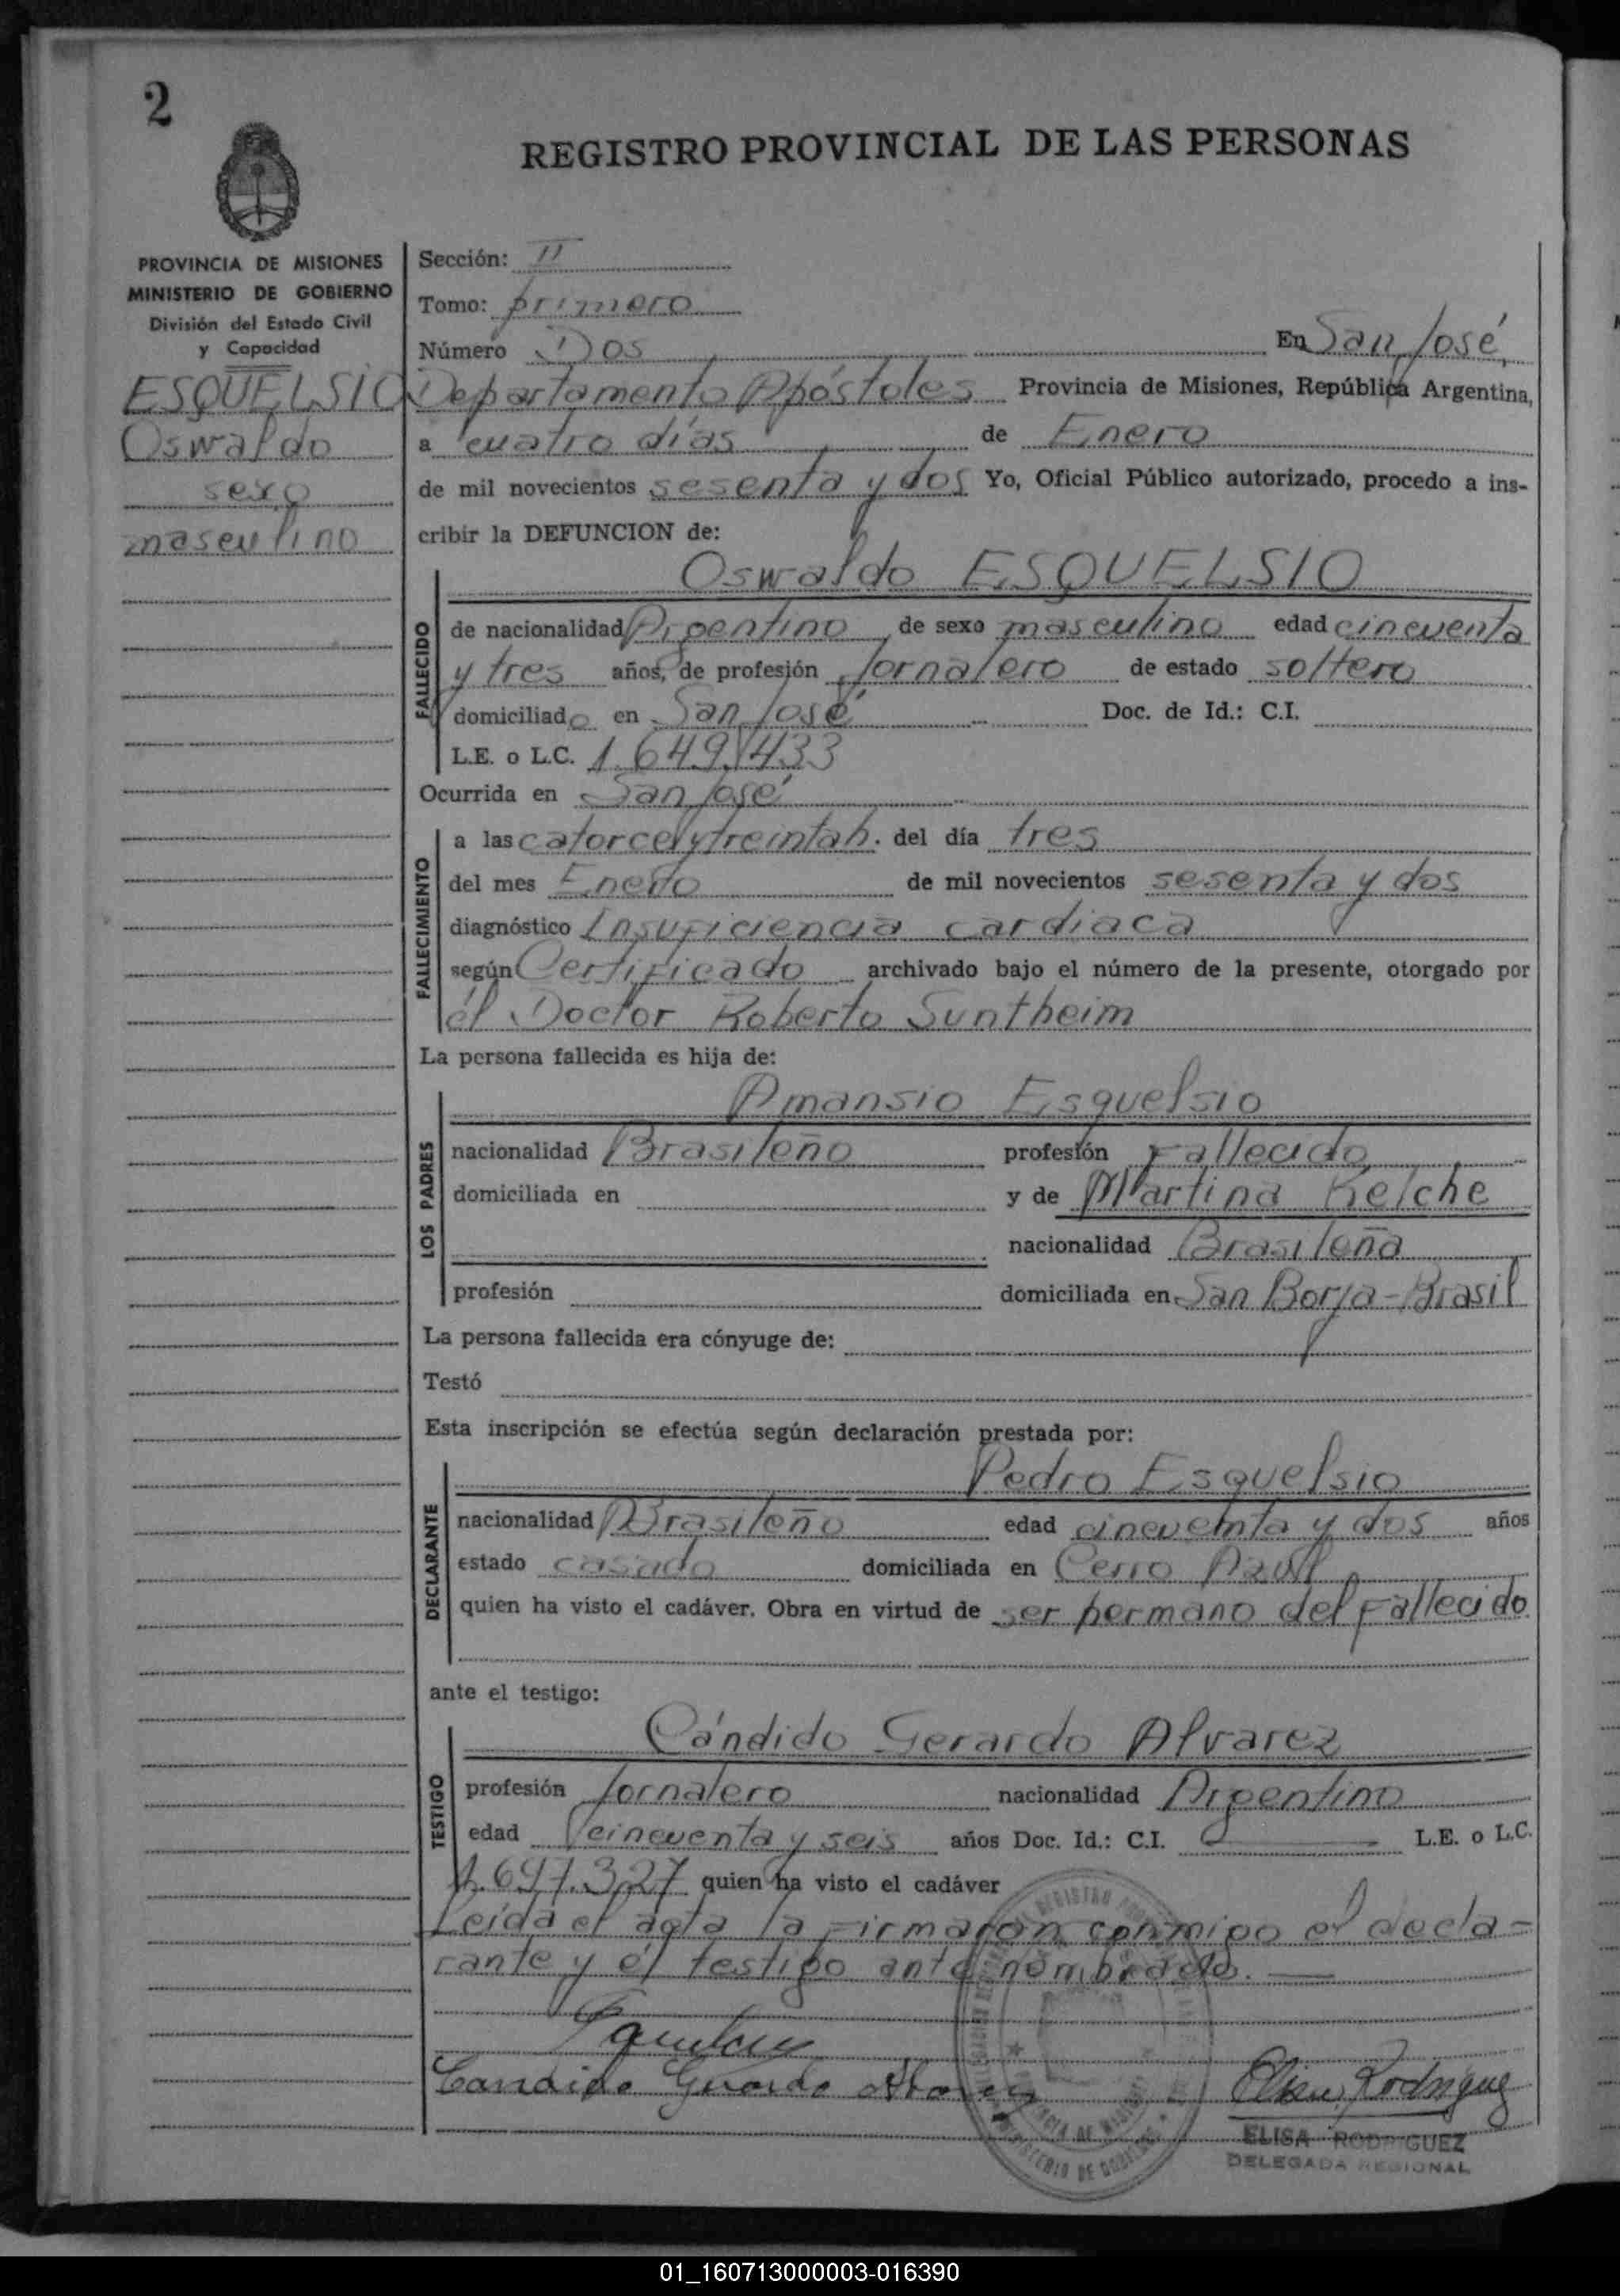 2
REGISTRO PROVINCIAL DE LAS PERSONAS
PROVINCIA DE MISIONES
MINISTERIO DE GOBIERNO
División del Estado Civil
y Capacidad
ESQUELSIO
Oswaldo
sexo
masculino
Sección: II
Tomo: primero
Número Dos En San José,
Departamento Apóstoles Provincia de Misiones, República Argentina,
a cuatro días de Enero
de mil novecientos sesenta y dos Yo, Oficial Público autorizado, procedo a ins-
cribir la DEFUNCION de:
Oswaldo ESQUELSIO
FALLECIDO
de nacionalidad Argentino de sexo masculino edad cincuenta
y tres años, de profesión Jornalero de estado soltero
domiciliado en San José Doc. de Id.: C.I.
L.E. o L.C. 1.649.433
Ocurrida en San José
FALLECIMIENTO
a las catorce y treinta h. del día tres
del mes Enero de mil novecientos sesenta y dos
diagnóstico Insuficiencia cardiaca
según Certificado archivado bajo el número de la presente, otorgado por
él Doctor Roberto Suntheim
La persona fallecida es hija de:
LOS PADRES
Amansio Esquelsio
nacionalidad Brasileño profesión Fallecido
domiciliada en y de Martina Kelche
nacionalidad Brasileña
profesión domiciliada en San Borja-Brasil
La persona fallecida era cónyuge de:
Testó
Esta inscripción se efectúa según declaración prestada por:
DECLARANTE
Pedro Esquelsio
nacionalidad Brasileño edad cincuenta y dos años
estado casado domiciliada en Cerro Azul
quien ha visto el cadáver. Obra en virtud de ser hermano del Fallecido
ante el testigo:
TESTIGO
Cándido Gerardo Alvarez
profesión Jornalero nacionalidad Argentino
edad cincuenta y seis años Doc. Id.: C.I. L.E. o L.C.
quien ha visto el cadáver
Leída el acta la Firmaron conmigo el decla-
rante y él testigo ante nombrado.
Candido Gerardo Alvarez
Elisa Rodriguez
ELISA RODRIGUEZ
DELEGADA REGIONAL
01_160713000003-016390